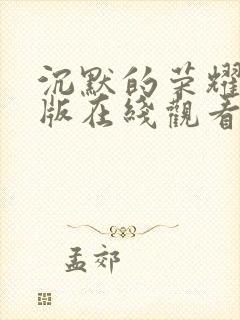 沉默的荣耀
版在綫觀看
孟郊